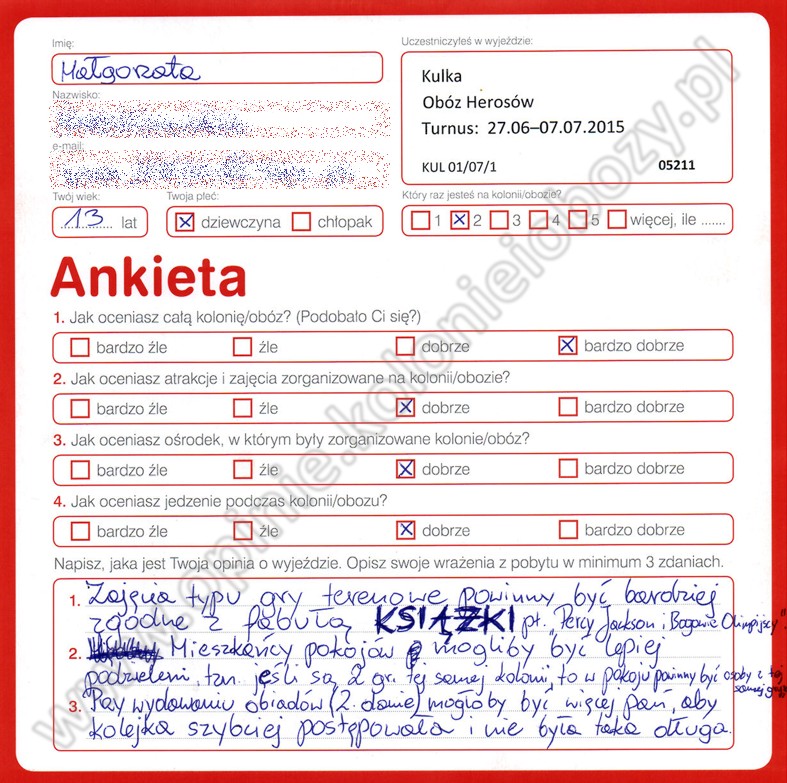 Imię:
Małgorzata
Nazwisko:
e-mail:
Twój wiek:
13 lat
Twoja płeć:
dziewczyna chłopak
Uczestniczyłeś w wyjeździe:
Kulka
Obóz Herosów
Turnus: 27.06–07.07.2015
KUL 01/07/1 05211
Który raz jesteś na kolonii/obozie?
1 2 3 4 5 więcej, ile .......
Ankieta
1. Jak oceniasz całą kolonię/obóz? (Podobało Ci się?)
bardzo źle źle dobrze bardzo dobrze
2. Jak oceniasz atrakcje i zajęcia zorganizowane na kolonii/obozie?
bardzo źle źle dobrze bardzo dobrze
3. Jak oceniasz ośrodek, w którym były zorganizowane kolonie/obóz?
bardzo źle źle dobrze bardzo dobrze
4. Jak oceniasz jedzenie podczas kolonii/obozu?
bardzo źle źle dobrze bardzo dobrze
Napisz, jaka jest Twoja opinia o wyjeździe. Opisz swoje wrażenia z pobytu w minimum 3 zdaniach.
1. Zajęcia typu gry terenowe powinny być bardziej
zgodne z fabułą KSIĄŻKI pt. "Percy Jackson i Bogowie Olimpijscy".
2. Mieszkańcy pokojów mogliby być lepiej
podzieleni, tzn. jeśli są 2 gr. tej samej kolonii, to w pokoju powinny być osoby z tej
samej grupy
3. Przy wydawaniu obiadów (2. danie) mogłoby być więcej pań, aby
kolejka szybciej postępowała i nie była taka długa.
www.opinie.kolonieiobozy.pl